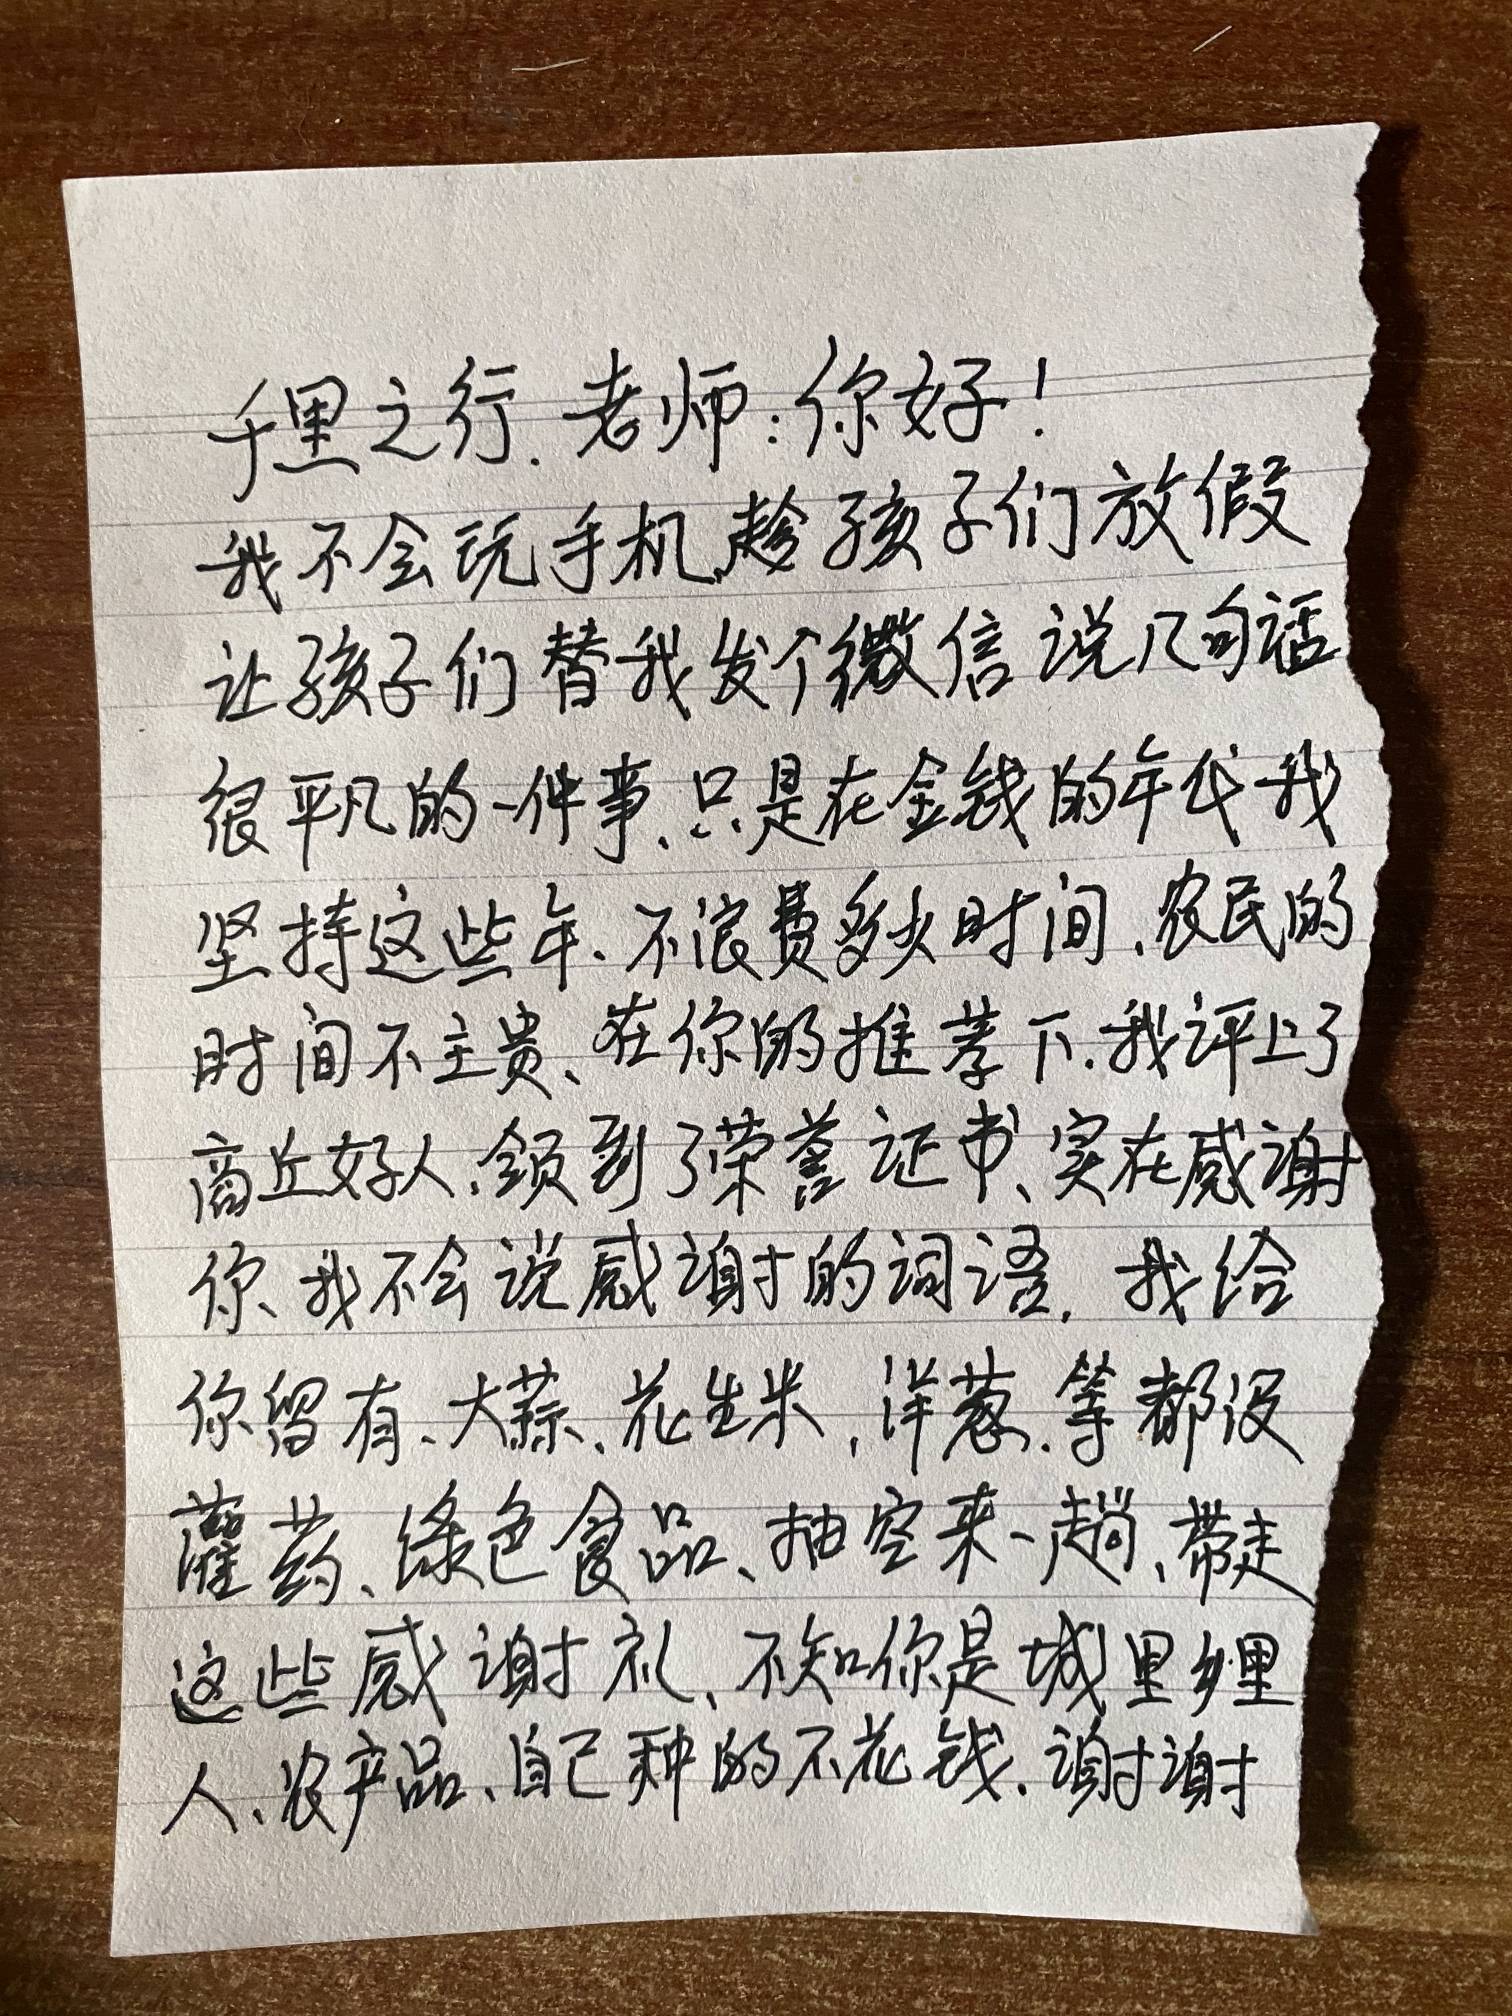 千里之行.老师:你好!
我不会玩手机,趁孩子们放假
让孩子们替我发个微信说几句话
很平凡的一件事、只是在金钱的年代我
坚持这些年、不浪费多少时间、农民的
时间不主贵、在你的推荐下.我评上了
商丘好人、领到了荣誉证书、实在感谢
你、我不会说感谢的词语,我给
你留有、大蒜、花生米,洋葱、等都没
灌药、绿色食品、抽空来一趟、带走
这些感谢礼、不知你是城里乡里
人、农产品、自己种的不花钱.谢谢